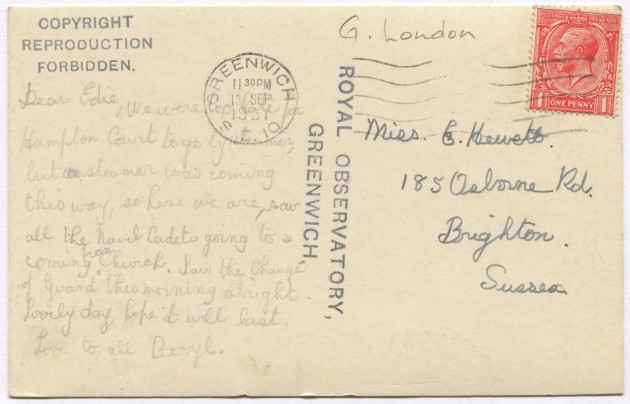 COPYRIGHT
REPRODUCTION
FORBIDDEN.
G. London
GREENWICH
11 30 PM
13 SEP
1931
S.E.10
POSTAGE
ONE PENNY
ROYAL OBSERVATORY,
GREENWICH.
Dear Edie, We were too late for
Hampton Court to go by steamer,
but a steamer was coming
this way, so here we are, saw
all the Naval Cadets going to &
coming from Church. Saw the Change
of Guard this morning alright.
Lovely day, hope it will last.
Love to all Beryl.
Miss. E. Hewett.
185 Osborne Rd.
Brighton.
Sussex